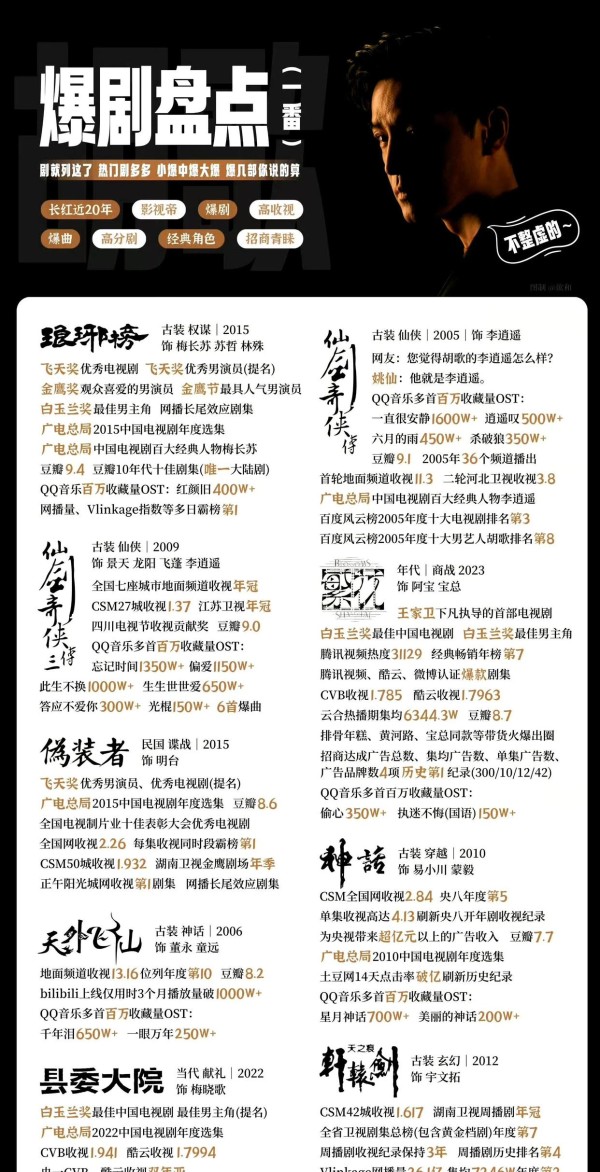 胡歌
爆剧盘点
(一番)
剧就列这了 热门剧多多 小爆中爆大爆 爆几部你说的算
长红近20年 影视帝 爆剧 高收视
爆曲 高分剧 经典角色 招商青睐
不整虚的~
琅琊榜
古装 权谋｜2015
饰 梅长苏 苏哲 林殊
飞天奖优秀电视剧 飞天奖优秀男演员(提名)
金鹰奖观众喜爱的男演员 金鹰节最具人气男演员
白玉兰奖最佳男主角 网播长尾效应剧集
广电总局2015中国电视剧年度选集
广电总局中国电视剧百大经典人物梅长苏
豆瓣9.4 豆瓣10年代十佳剧集(唯一大陆剧)
QQ音乐百万收藏量OST：红颜旧400W+
网播量、Vlinkage指数等多日霸榜第1
仙剑奇侠三传
古装 仙侠｜2009
饰 景天 龙阳 飞蓬 李逍遥
全国七座城市地面频道收视年冠
CSM27城收视1.37 江苏卫视年冠
四川电视节收视贡献奖 豆瓣9.0
QQ音乐多首百万收藏量OST：
忘记时间1350W+ 偏爱1150W+
此生不换1000W+ 生生世世爱650W+
答应不爱你300W+ 光棍150W+ 6首爆曲
伪装者
民国 谍战｜2015
饰 明台
飞天奖优秀男演员、优秀电视剧(提名)
广电总局2015中国电视剧年度选集 豆瓣8.6
全国电视制片业十佳表彰大会优秀电视剧
全国网收视2.26 每集收视同时段霸榜第1
CSM50城收视1.932 湖南卫视金鹰剧场年季
正午阳光城网收视第1剧集 网播长尾效应剧集
天外飞仙
古装 神话｜2006
饰 董永 童远
地面频道收视13.16位列年度第10 豆瓣8.2
bilibili上线仅用时3个月播放量破1000W+
QQ音乐多首百万收藏量OST：
千年泪650W+ 一眼万年250W+
县委大院
当代 献礼｜2022
饰 梅晓歌
白玉兰奖最佳中国电视剧 最佳男主角(提名)
广电总局2022中国电视剧年度选集
CVB收视1.941 酷云收视1.7994
仙剑奇侠传
古装 仙侠｜2005｜饰 李逍遥
网友：您觉得胡歌的李逍遥怎么样?
姚仙：他就是李逍遥。
QQ音乐多首百万收藏量OST：
一直很安静1600W+ 逍遥叹500W+
六月的雨450W+ 杀破狼350W+
豆瓣9.1 2005年36个频道播出
首轮地面频道收视11.3 二轮河北卫视收视3.8
广电总局中国电视剧百大经典人物李逍遥
百度风云榜2005年度十大电视剧排名第3
百度风云榜2005年度十大男艺人胡歌排名第8
繁花
年代｜商战 2023
饰 阿宝 宝总
王家卫下凡执导的首部电视剧
白玉兰奖最佳中国电视剧 白玉兰奖最佳男主角
腾讯视频热度31129 经典畅销年榜第7
腾讯视频、酷云、微博认证爆款剧集
CVB收视1.785 酷云收视1.7963
云合热播期集均6344.3W 豆瓣8.7
排骨年糕、黄河路、宝总同款等带货火爆出圈
招商达成广告总数、集均广告数、单集广告数、
广告品牌数4项历史第1纪录(300/10/12/42)
QQ音乐多首百万收藏量OST：
偷心350W+ 执迷不悔(国语)150W+
神话
古装 穿越｜2010
饰 易小川 蒙毅
CSM全国网收视2.84 央八年度第5
单集收视高达4.13刷新央八开年剧收视纪录
为央视带来超亿元以上的广告收入 豆瓣7.7
广电总局2010中国电视剧年度选集
土豆网14天点击率破亿刷新历史纪录
QQ音乐多首百万收藏量OST：
星月神话700W+ 美丽的神话200W+
轩辕剑 天之痕
古装 玄幻｜2012
饰 宇文拓
CSM42城收视1.617 湖南卫视周播剧年冠
全省卫视剧集总榜(包含黄金档剧)年度第7
周播剧收视纪录保持3年 周播剧历史排名第4